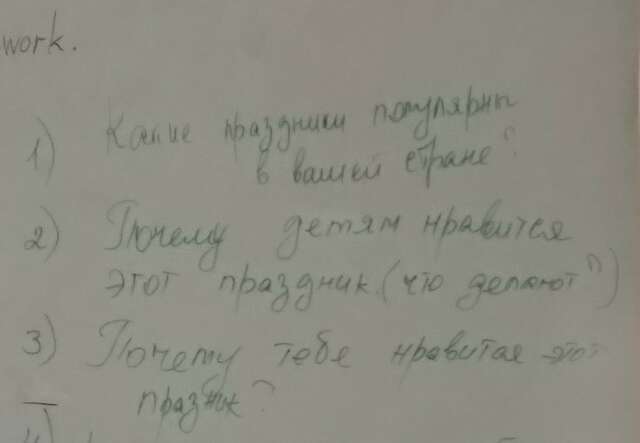 work.
1) Какие праздники популярны
в вашей стране?
2) Почему детям нравится
этот праздник. (что делают?)
3) Почему тебе нравится этот
празник?